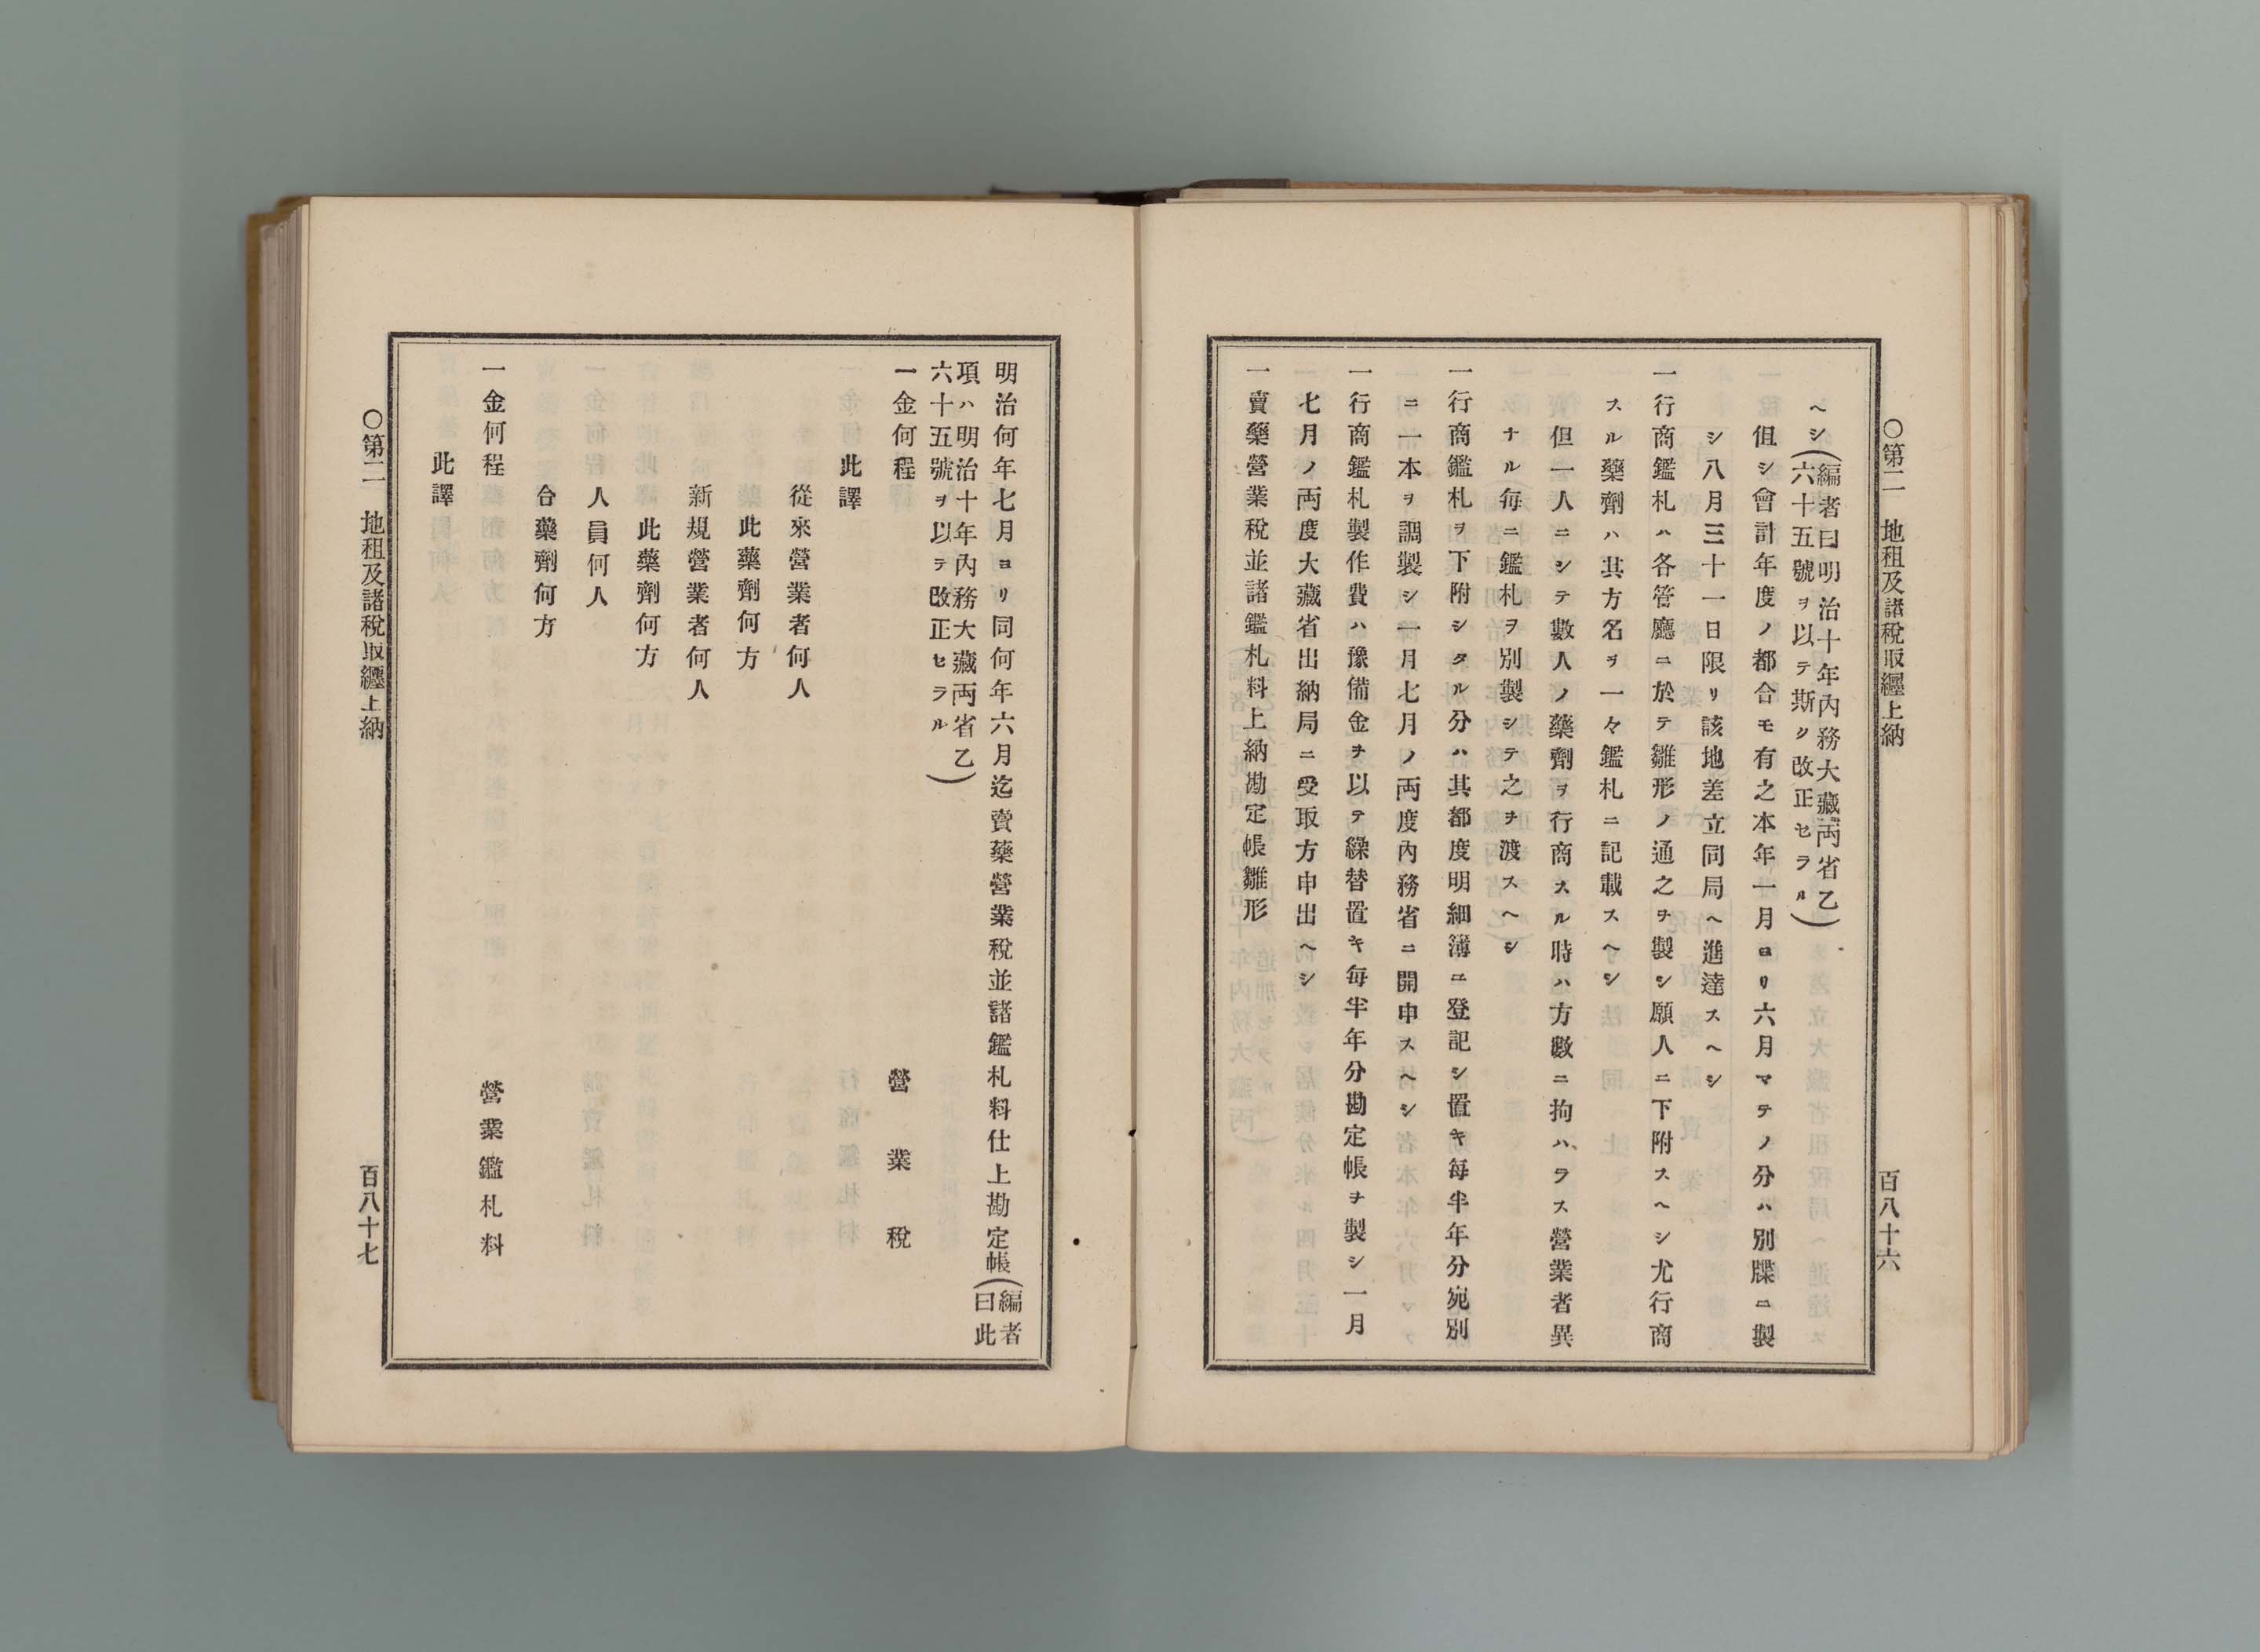 ○第二　地租及諸稅取纒上納　百八十六
ヘシ（編者曰明治十年內務大藏兩省乙
六十五號ヲ以テ斯ク改正セラル）
但シ會計年度ノ都合モ有之本年一月ヨリ六月マテノ分ハ別牒ニ製
シ八月三十一日限リ該地差立同局ヘ進達スヘシ
一行商鑑札ハ各管廳ニ於テ雛形ノ通之ヲ製シ願人ニ下附スヘシ尤行商
スル藥劑ハ其方名ヲ一々鑑札ニ記載スヘシ
但一人ニシテ數人ノ藥劑ヲ行商スル時ハ方數ニ拘ハラス營業者異
ナル每ニ鑑札ヲ別製シテ之ヲ渡スヘシ
一行商鑑札ヲ下附シタル分ハ其都度明細簿ニ登記シ置キ每半年分宛別
ニ一本ヲ調製シ一月七月ノ兩度內務省ニ開申スヘシ
一行商鑑札製作費ハ豫備金ヲ以テ繰替置キ每半年分勘定帳ヲ製シ一月
七月ノ兩度大藏省出納局ニ受取方申出ヘシ
一賣藥營業稅並諸鑑札料上納勘定帳雛形
明治何年七月ヨリ同何年六月迄賣藥營業稅並諸鑑札料仕上勘定帳（編者
曰此
項ハ明治十年內務大藏兩省乙
六十五號ヲ以テ改正セラル）
一金何程　營業稅
此譯
從來營業者何人
此藥劑何方
新規營業者何人
此藥劑何方
人員何人
合藥劑何方
一金何程　營業鑑札料
此譯
○第二　地租及諸稅取纒上納　百八十七